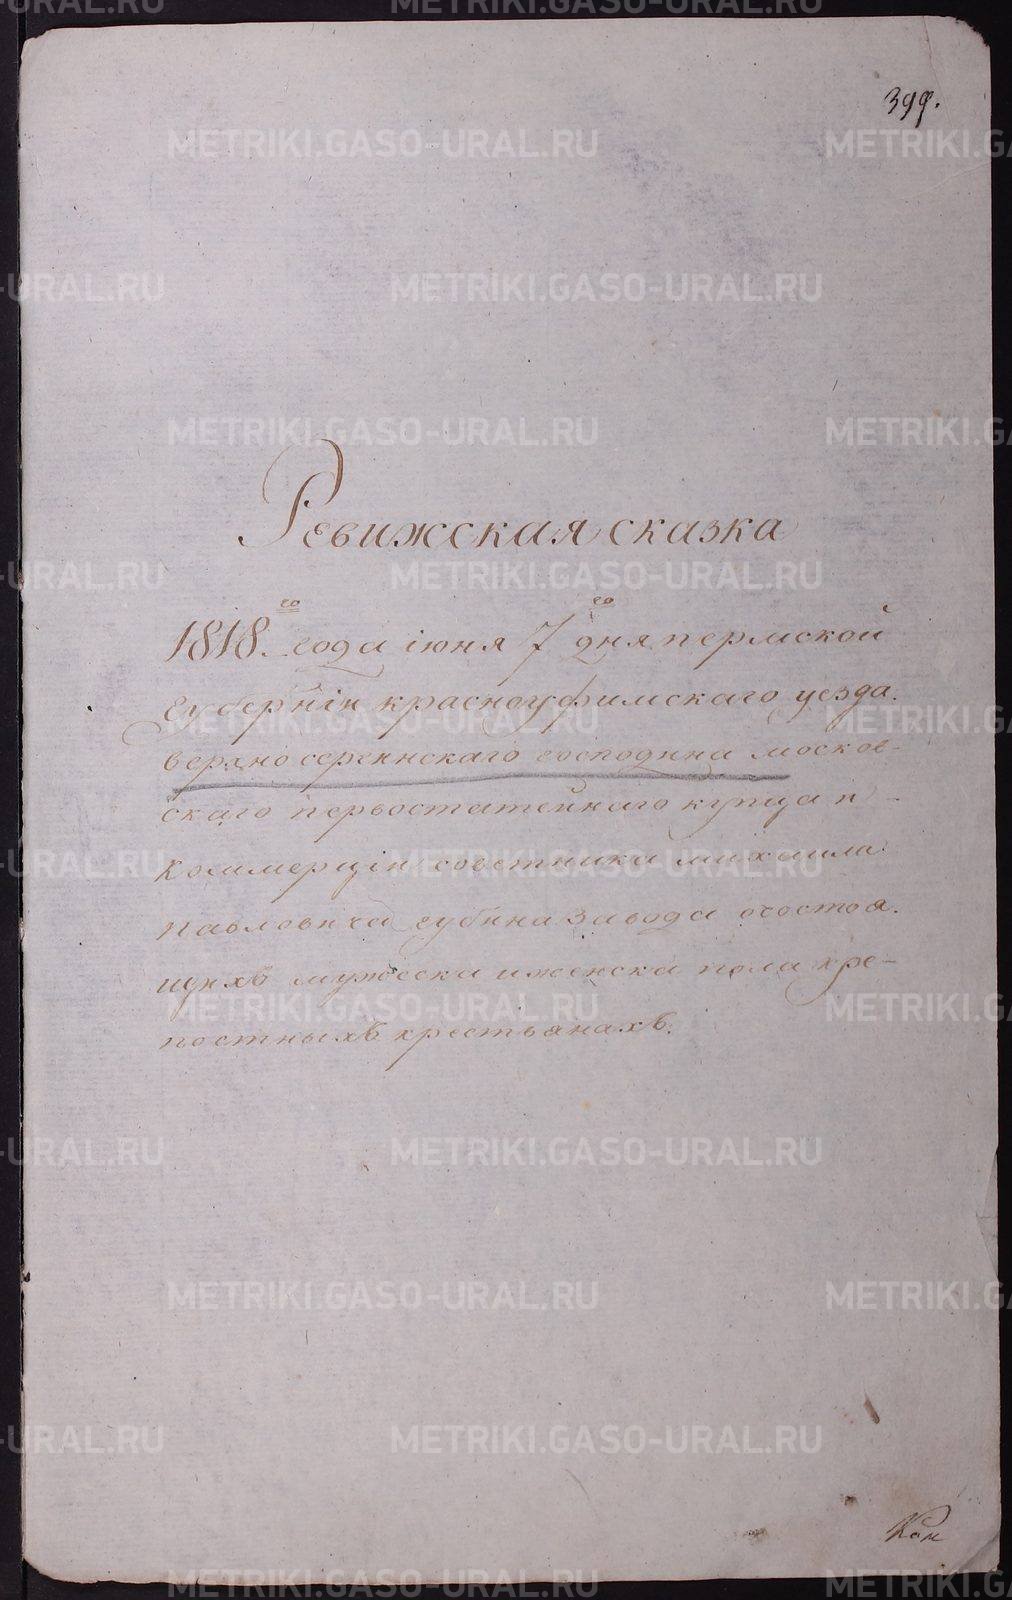 399.
Ревижская сказка
1818.го года iюня 7го дня пермской
Губернiи красноуфимскаго уезда.
верхно сергинскаго господина москов-
скаго первостатейнаго купца и
коммерцiи советника михаила
Павловича губина завода осостоя.
щихъ мужеска иженска пола кре-
постныхъ крестьянахъ.
METRIKI.GASO-URAL.RU